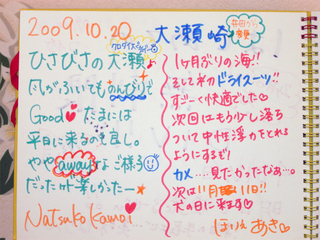 2009.10.20
大瀬崎
ひさびさの大瀬♪
風がふいてものんびりで
Good♥たまには
平日に来るのも良し。
やや awayなご様子
だったけど楽しかったー★
Natsuko Kamoi
1ヶ月ぶりの海!!
そして初のドライスーツ!!
すごーく快適でした♡
次回はもう少し潜る
ついて中性浮力をとれる
ようにするぞ!
カメ…見たかったなぁ…
次は11月11日!!
犬の日に来ます♡
ほりえ あき♡